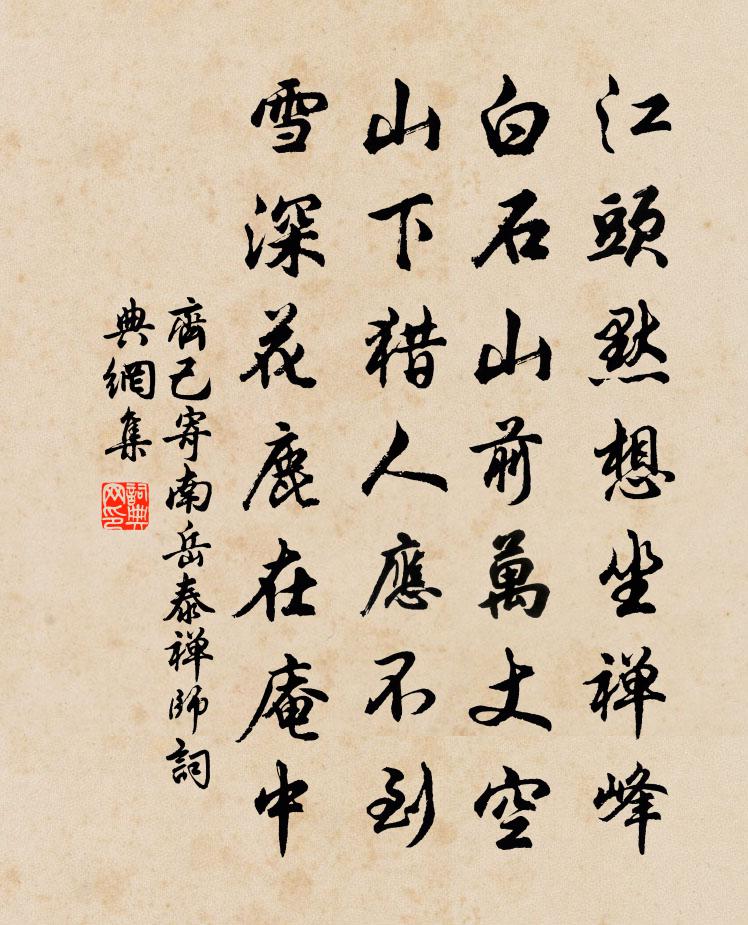 江頭默想坐禅峰
白石山前萬丈空
山下猎人應不到
雪深花鹿在庵中
齊己寄南岳泰禅師詞
典網集
詞典网印